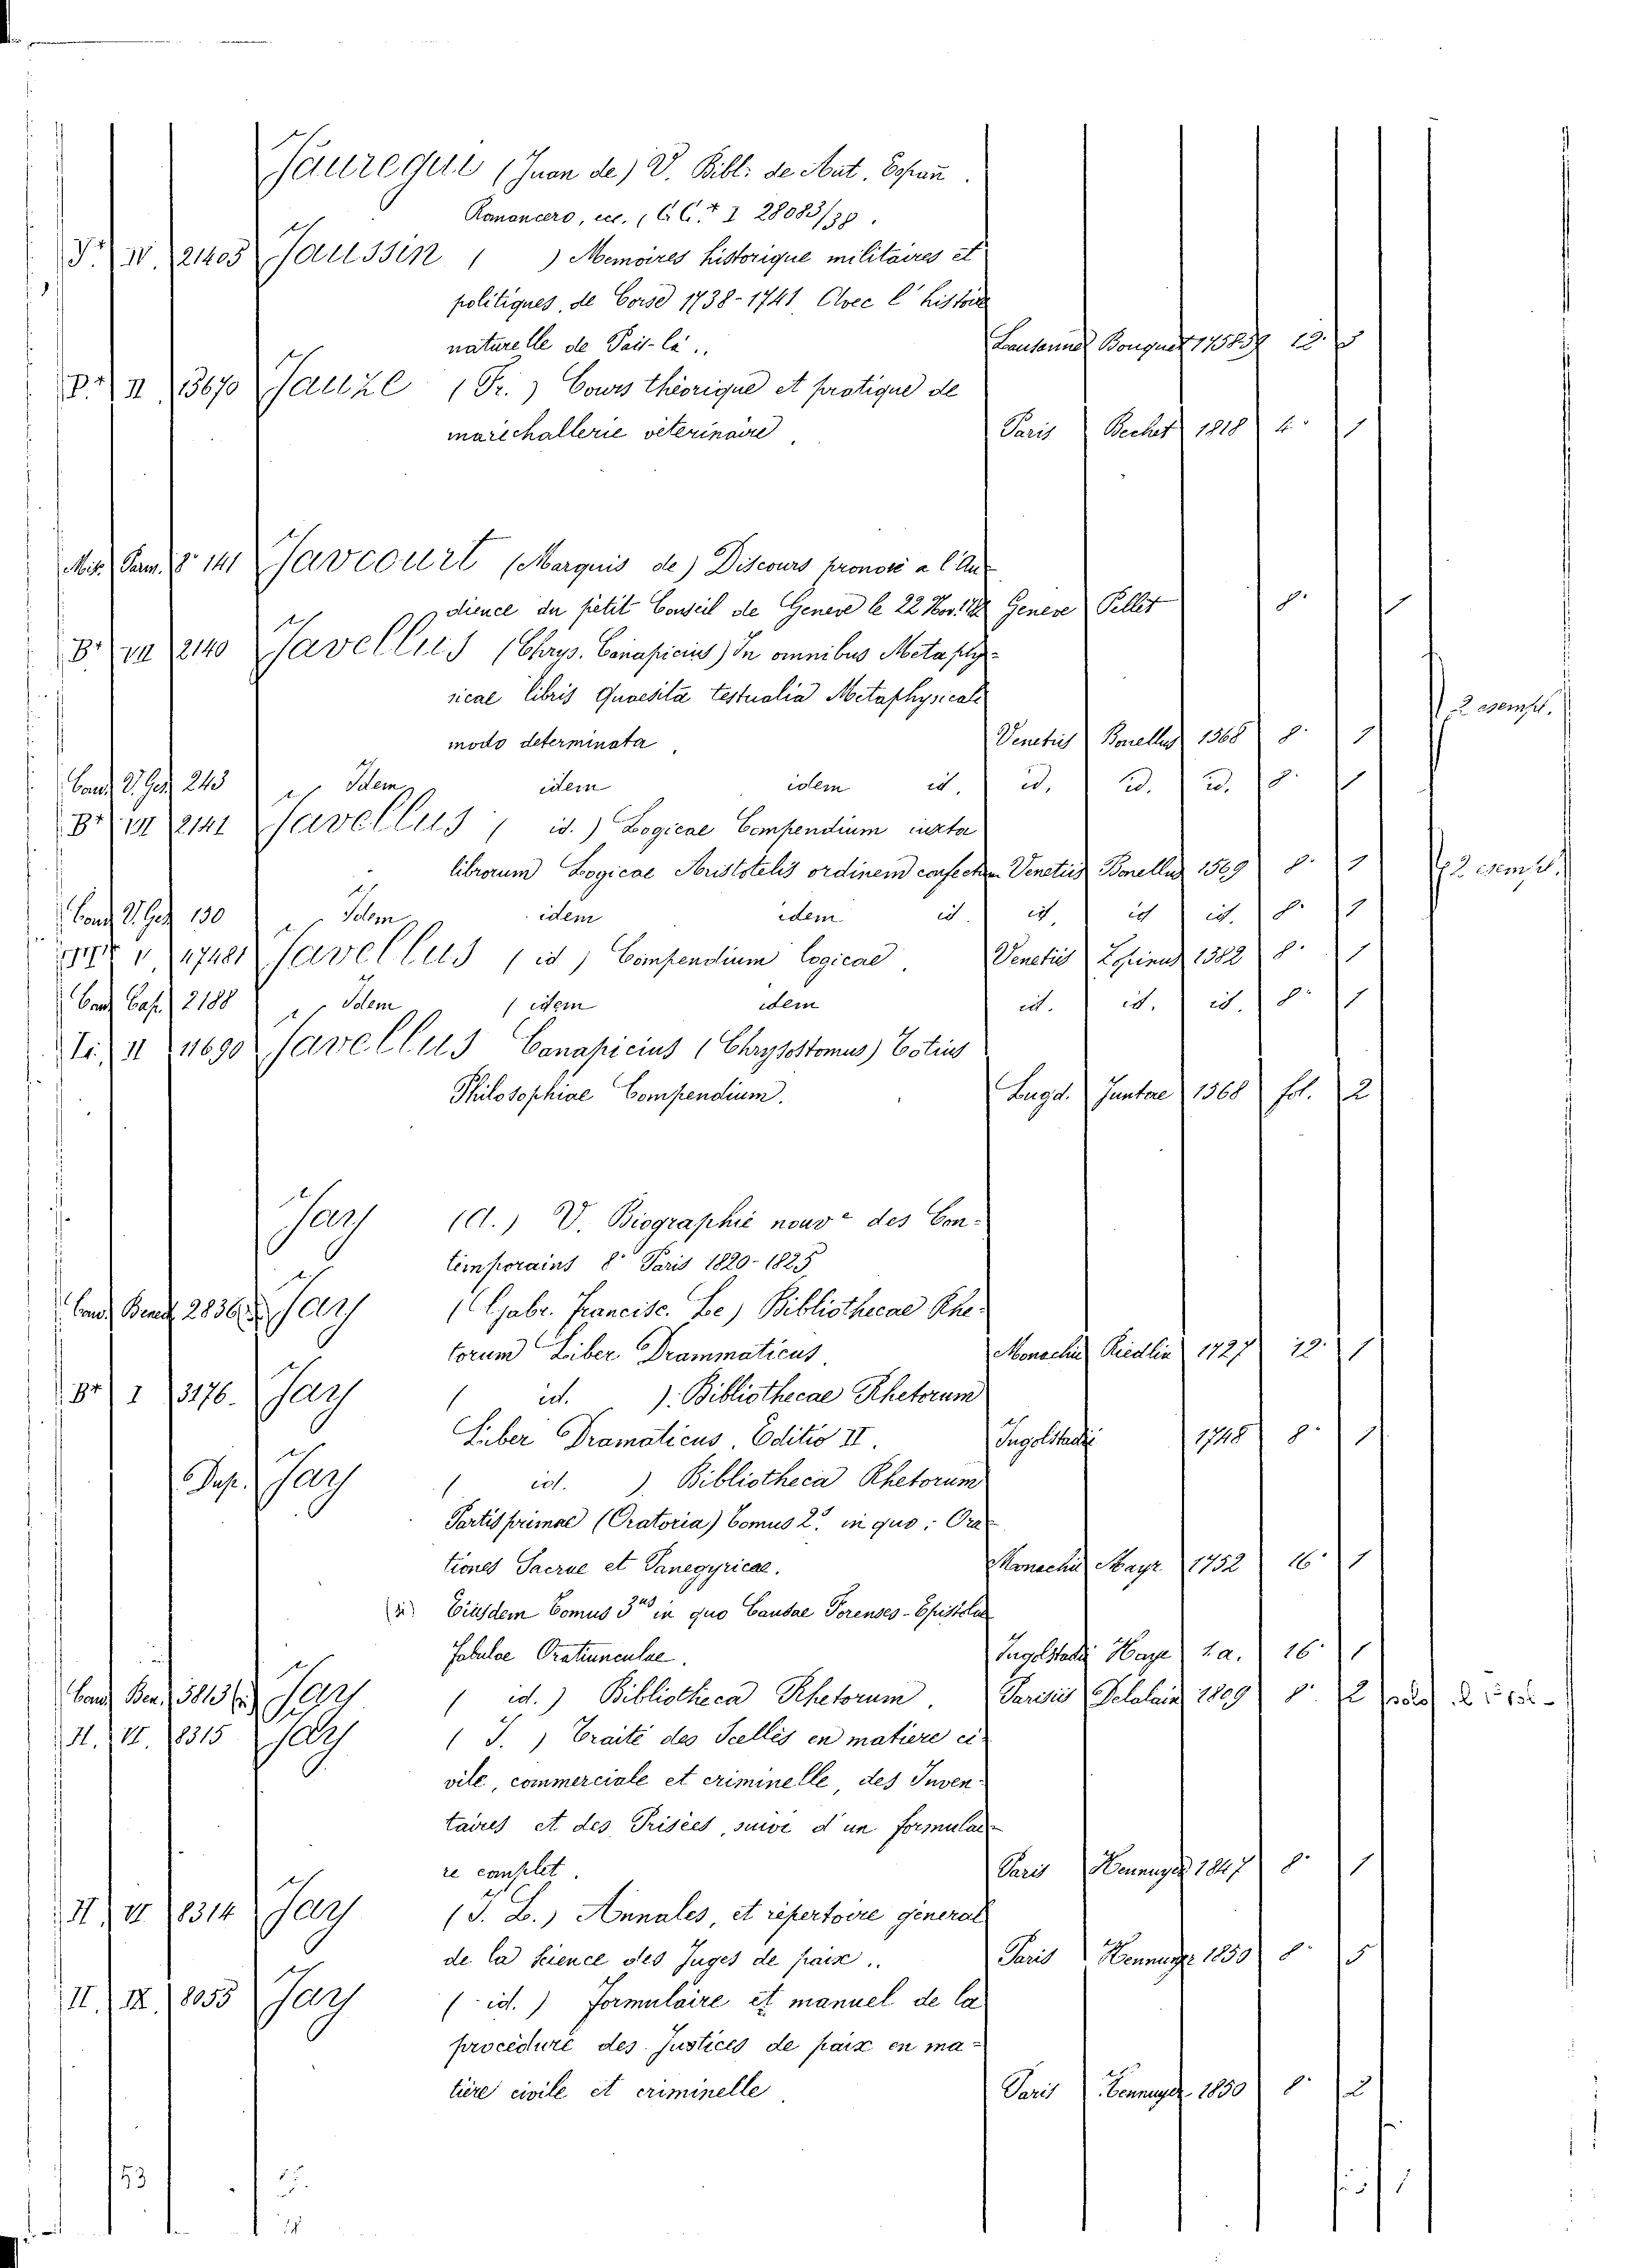 Jauregui (Juan de) V. Bibl: de Aut. Españ.
Romancero, ecc. (C. C.ta I 28083/38.
B.ta IV. 21405 Jaussin ( ) Memoires historique militaires et
politiques, de Corse 1738-1741 Avec l'histoire
naturelle de Pais-là .. Lausanne Bouquet 1758-59 12. 5
B.ta II 13670 Jauze (Fr.) Cours théorique et pratique de
marechallerie véterinaire. Paris Bechet 1818 4. 1
Mis. Parm. 8° 141 Javcourt (Marquis de) Discours pronosé a l'Au-
dience du petit Conseil de Geneve le 22 Nov. Geneve Pellet 8. 1
B.ta VII 2140 Javellus (Chrys. Canapicius) In omnibus Metaphy-
sicae libris Quaesita testualia Metaphysicali
modo determinata. Venetiis Bonellus 1568 8. 1 2 esempl.
Cand. V. Ges. 243 Idem idem idem id. id. id. id. 8. 1
B.ta VII 2141 Javellus ( id. ) Logicae Compendium iuxta
librorum Logicae Aristotelis ordinem confectum Venetiis Bonellus 1569 8. 1 2 esempl.
Cand. V. Ges. 130 Idem idem idem id. id. id. id. 8. 1
V 17481 Javellus ( id ) Compendium logicae. Venetiis 1582 8. 1
Cand. Cap. 2188 Idem ( idem idem id. id. id. 8. 1
Tr. II 11690 Javellus Canapicius (Chrysostomus) Totius
Philosophiae Compendium. Lugd. Juntae 1568 fol. 2
Jay (A.) V. Biographie nouve des Con-
temporains 8° Paris 1820-1825
Cand. Bened. 2836 Jay (Gabr. Francisc. Le) Bibliothecae Rhe-
torum Liber Drammaticus. Monachii Riedlin 1727 12. 1
B.ta I 3176. Jay ( id. ). Bibliothecae Rhetorum
Liber Dramaticus. Editio II. Ingolstadii 1748 8. 1
Dup. Jay ( id. ). Bibliotheca Rhetorum
Partis primae (Oratoria) Tomus 2us in quo: Ora-
tiones Sacrae et Panegyricae. Monachii Mayr 1752 16. 1
Eiusdem Tomus 3us in quo Causae Forenses - Epistolae
Fabulae Oratiunculae. Ingolstadii s.a. 16. 1
Cand. Ben. 3813 Jay ( id. ) Bibliotheca Rhetorum. Parisiis Delalain 1809 8. 2
II. VI. 8315 Jay ( J. ) Traité des Scellés en matiere ci-
vile, commerciale et criminelle, des Inven-
taires et des Prisées, suivi d'un formulai-
re complet. Paris Hennuyer 1847 8. 1
II. VI 8314 Jay (J. L.) Annales, et répertoire general
de la science des Juges de paix .. Paris Hennuyer 1850 8. 5
II. IX. 8055 Jay ( id. ) Formulaire et manuel de la
procedure des Justices de paix en ma-
tière civile et criminelle. Paris Hennuyer 1850 8. 2
53